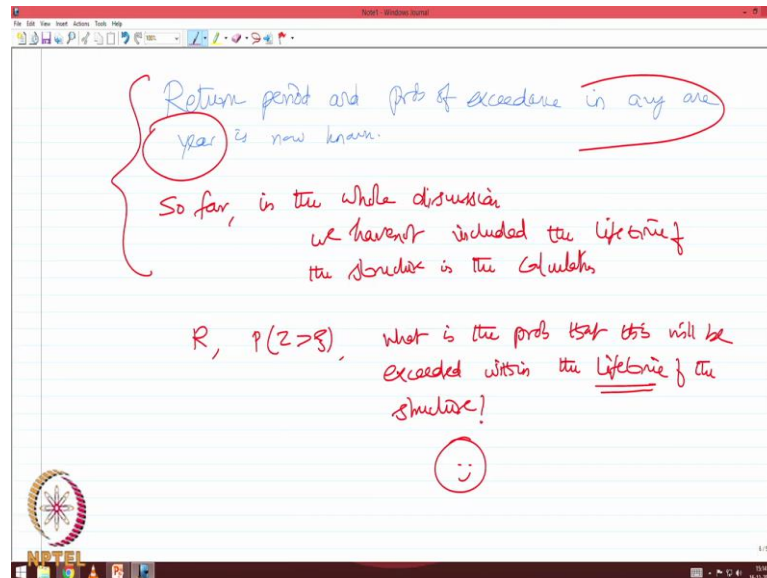 Note1 - Windows Journal
File Edit View Insert Actions Tools Help
Return period and prob of exceedance in any one
year is now known.
So far, in the whole discussion
we havenot included the lifetime of
the structure in the calculations
R, P(Z>ξ), what is the prob that this will be
exceeded within the lifetime of the
structure?
NPTEL